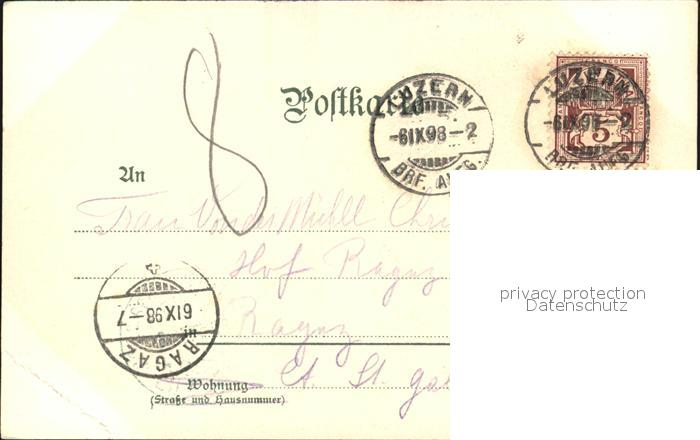 Postkarte
LUZERN
-6IX98-2
BRF. AUFG.
LUZERN
-6IX98-2
BRF. AUFG.
5
8
An
Frau VonderMühll Chri
Hof Ragaz
Ragaz
in
Ct. St. ga
RAGAZ
6IX98-7
Wohnung
(Straße und Hausnummer)
privacy protection
Datenschutz